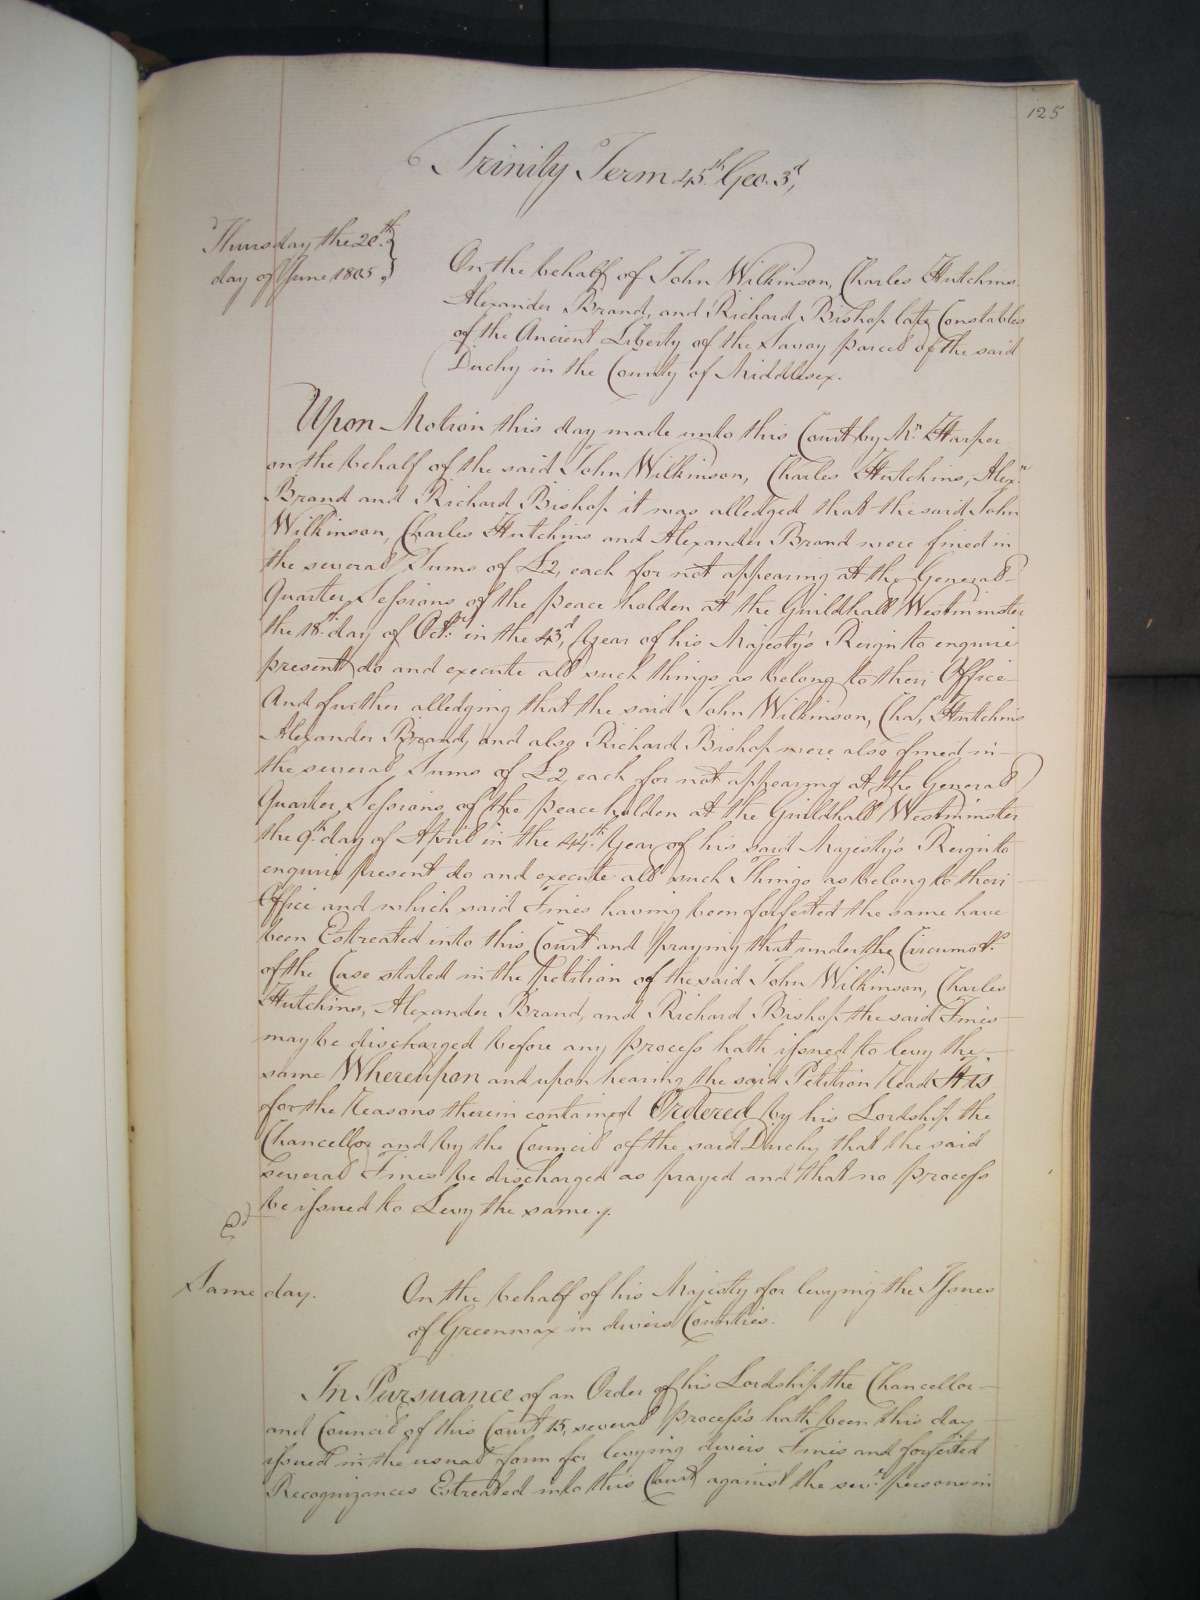 125
Trinity Term 45th Geo. 3d,
Thursday the 20th
day of June 1805.
On the behalf of John Wilkinson, Charles Hutchins,
Alexander Brand, and Richard Bishop late Constables
of the Ancient Liberty of the Savoy parcel of the said
Duchy in the County of Middlesex.
Upon Motion this day made unto this Court by Mr. Harper
on the behalf of the said John Wilkinson, Charles Hutchins, Alexr.
Brand and Richard Bishop it was alledged that the said John
Wilkinson, Charles Hutchins and Alexander Brand were fined in
the several Sums of £2, each for not appearing at the General
Quarter Sessions of the peace holden at the Guildhall Westminster
the 18th day of Octr. in the 43d, Year of his Majesty's Reign to enquire
present do and execute all such things as belong to their Office
And further alledging that the said John Wilkinson, Chas, Hutchins
Alexander Brand, and also Richard Bishop were also fined in
the several Sums of £2, each for not appearing at the General
Quarter Sessions of the peace holden at the Guildhall Westminster
the 9th day of April in the 44th Year of his said Majesty's Reign to
enquire present do and execute all such Things as belong to their
Office and which said Fines having been forfeited the same have
been Estreated into this Court and praying that under the Circumsts.
of the Case stated in the petition of the said John Wilkinson, Charles
Hutchins, Alexander Brand, and Richard Bishop the said Fines
may be discharged before any process hath issued to levy the
same Whereupon and upon hearing the said Petition Read It is
for the Reasons therein contained Ordered by his Lordship the
Chancellor and by the Council of the said Duchy that the said
several Fines be discharged as prayed and that no process
be issued to Levy the same.
Same day.
On the behalf of his Majesty for levying the Issues
of Greenwax in divers Counties.
In Pursuance of an Order of his Lordship the Chancellor
and Council of this Court 15, several process's hath been this day
issued in the usual form for levying divers Fines and forfeited
Recognizances Estreated into this Court against the sevl. persons in